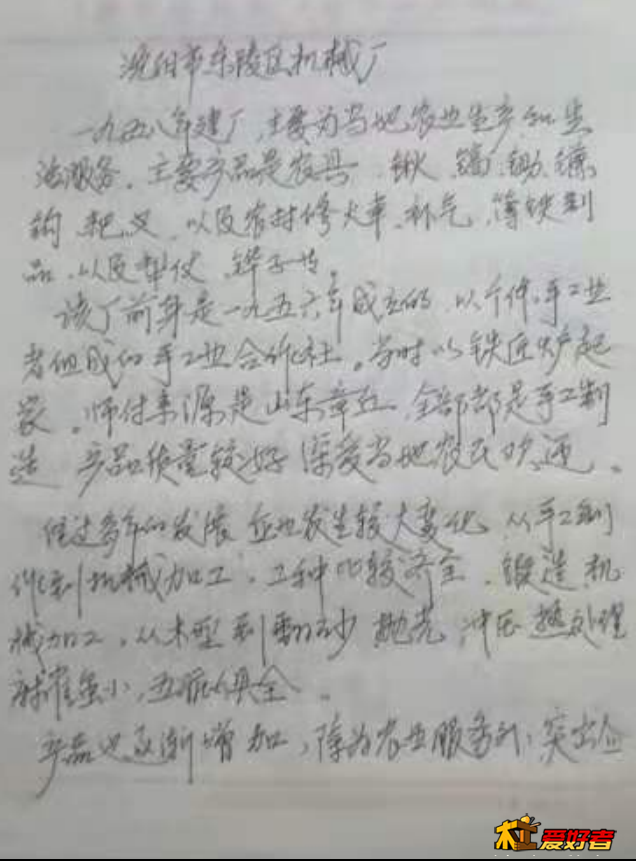 沈阳市东陵区机械厂
一九五八年建厂,主要为当地农业生产和生
活服务。主要产品是农具 锹、镐、锄、镰、
钩、耙、叉、以及农村修大车、补气、等铁制
品、以及犁仗 铧子等。
该厂前身是一九五六年成立的 以个体手工业
者组成的手工业合作社。当时以铁匠炉起
家。师付来源是山东章丘 全部都是手工制
造 产品质量较好 深受当地农民欢迎。
经过多年的发展 企业发生较大变化 从手工制
作到机械加工,工种比较齐全,锻造 机
械加工,从木型到翻砂 抛光,冲压 热处理
麻雀虽小,五脏俱全。
产品也逐渐增加,除为农业服务外,突出
杠爱好者